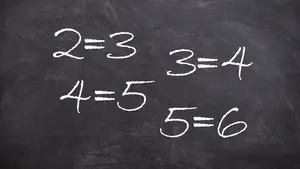 2=3
3=4
4=5
5=6